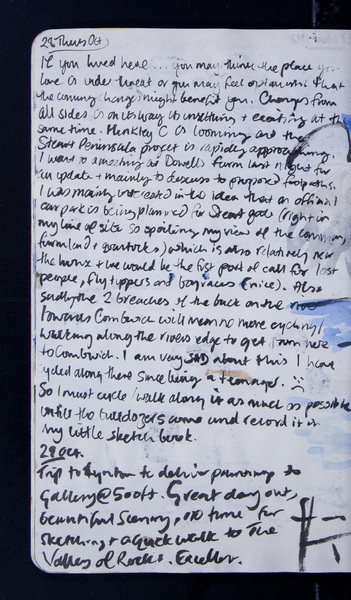 28 Thurs Oct
If you lived here... you may think the place you
love is under threat or you may feel optimistic that
the coming changes might benefit you. Changes from
all sides is on its way its unsettling + exciting at the
same time. Hinkley C is looming and the
Steart Peninsula project is rapidly approaching.
I went to a meeting at Dowells Farm last night for
an update + mainly to discuss the proposed footpaths.
I was mainly interested in the idea that an official
car park is being planned for Steart gate (right in
my line of site so spoiling my view of the common,
farmland + quantocks) which is also relatively near
the house + we would be the first port of call for lost
people, fly tippers and boy racers (nice). Also
sadly the 2 breaches of the bank on the river
towards Combwich will mean no more cycling/
walking along the rivers edge to get from here
to Combwich. I am very SAD about this I have
cycled along there since being a teenager. :(
So I must cycle/walk along it as much as possible
until the bulldozers come and record it in
my little sketch book.
29 Oct.
Trip to Lynton to deliver paintings to
Gallery@50oft. Great day out,
beautiful scenery, time for
sketching + a quick walk to the
Valley of Rocks. Excellent.